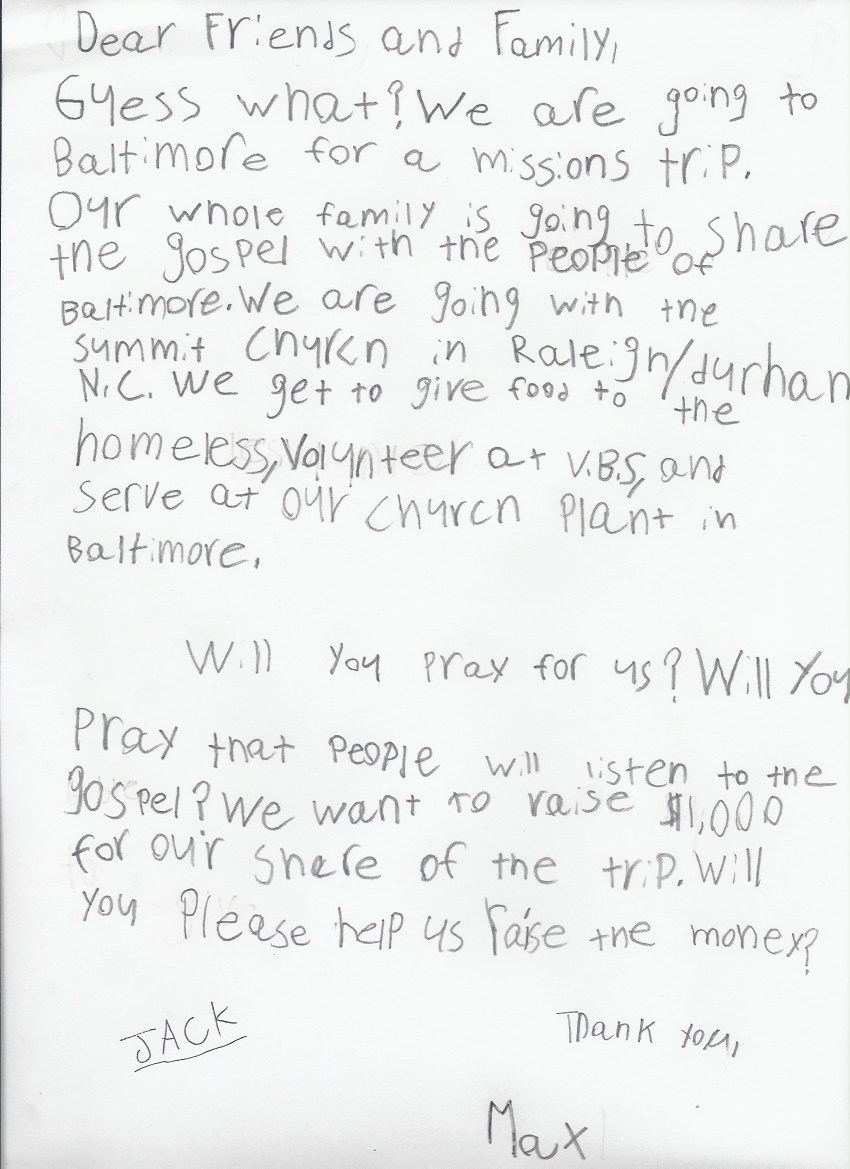 Dear Friends and Family,
Guess what? We are going to
Baltimore for a missions trip.
Our whole family is going to share
the gospel with the people of
Baltimore. We are going with the
summit church in Raleigh/durham
N.C. We get to give food to the
homeless, Volunteer at V.B.S, and
serve at our church plant in
Baltimore.
Will you pray for us? Will you
pray that people will listen to the
gospel? We want to raise $1,000
for our share of the trip. Will
you please help us raise the money?
JACK
Thank you,
Max